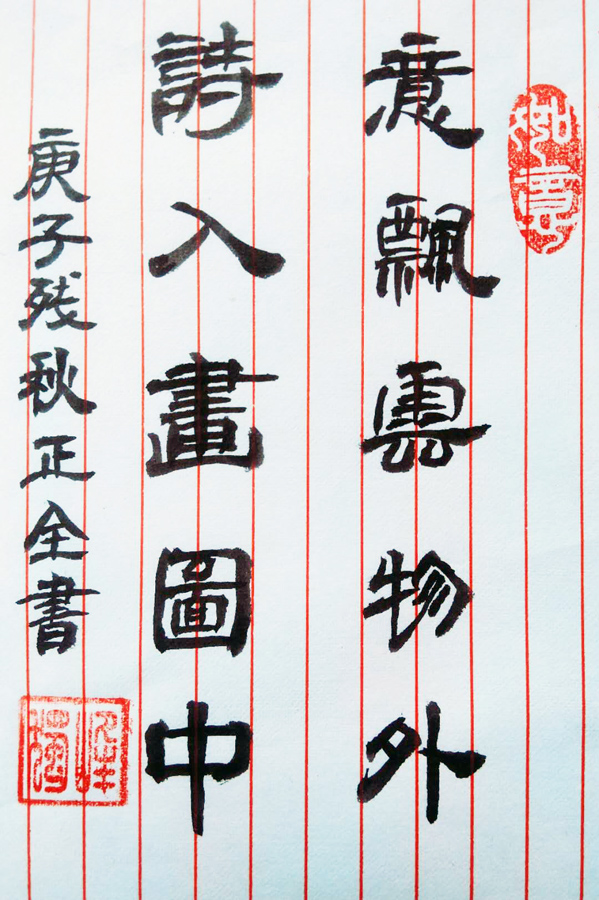 意飄雲物外
詩入畫圖中
庚子残秋正全書